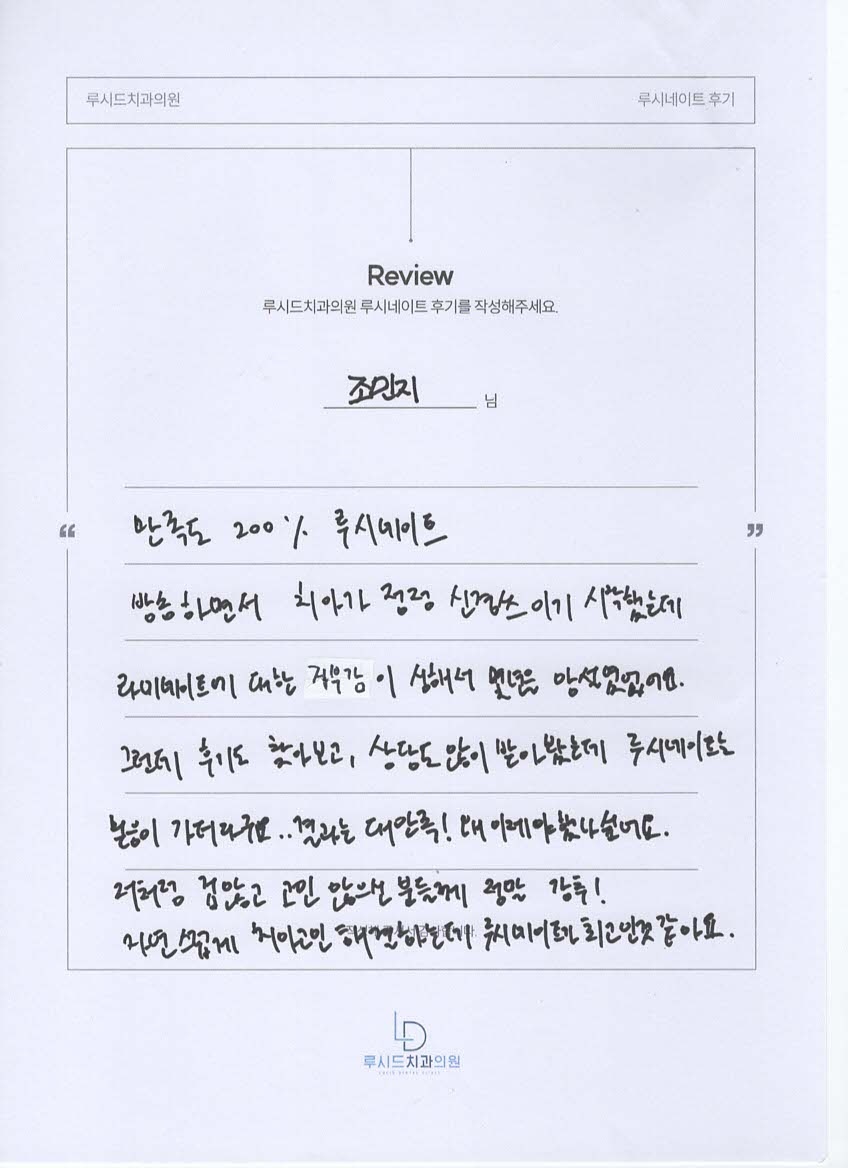 루시드치과의원
루시네이트 후기
Review
루시드치과의원 루시네이트 후기를 작성해주세요.
조민지 님
만족도 200% 루시네이트
방송하면서 치아가 점점 신경쓰이기 시작했는데
라미네이트에 대한 거부감이 심해서 몇년은 망설였었어요.
그런데 후기도 찾아보고, 상담도 많이 받아봤는데 루시네이트는
믿음이 가더라구요..결과는 대만족! 왜 이제야했나 싶네요.
저처럼 겁많고 고민 많으신 분들께 정말 강추!
자연스럽게 치아고민 해결하는데 루시네이트가 최고인것 같아요.
LD
루시드치과의원